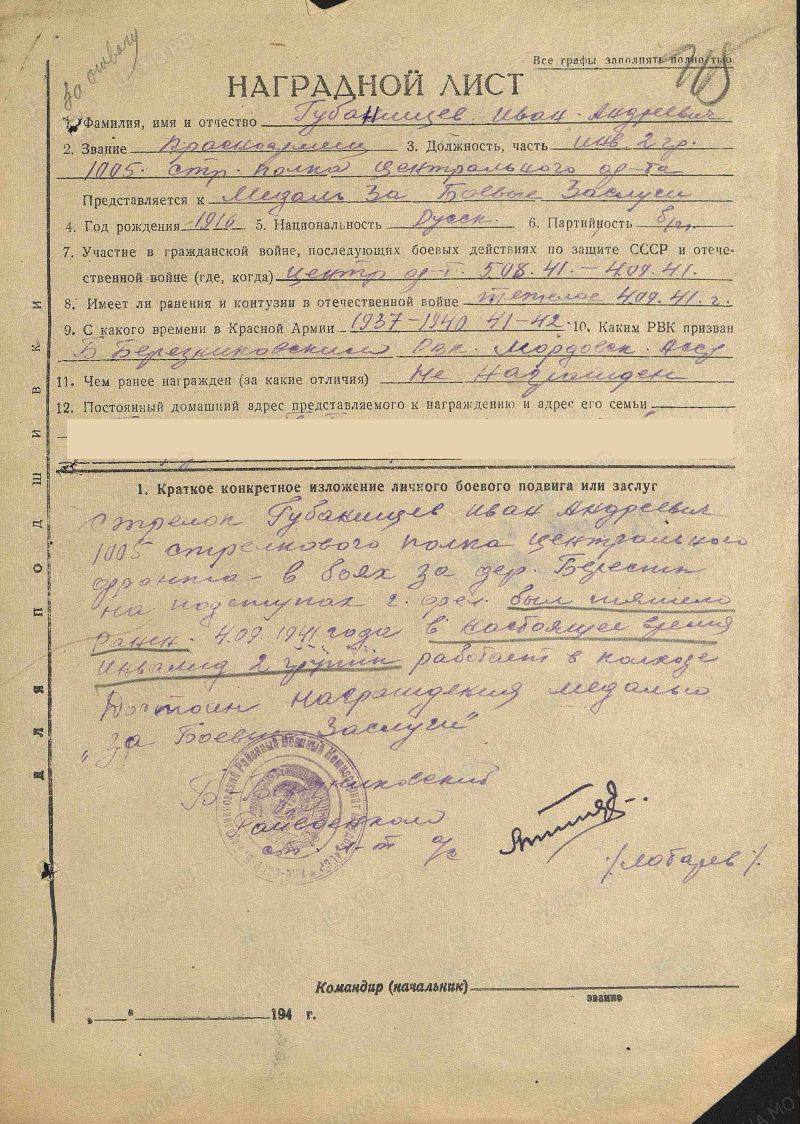 За отвагу
Все графы заполнять полностью.
НАГРАДНОЙ ЛИСТ
1. Фамилия, имя и отчество Губанищев Иван Андреевич
2. Звание Красноармеец 3. Должность, часть инв. 2 гр.
1005. стр. полка Центрального фр-та
Представляется к Медаль За Боевые Заслуги
4. Год рождения 1916 5. Национальность Русск. 6. Партийность б/п.
7. Участие в гражданской войне, последующих боевых действиях по защите СССР и отече-
ственной войне (где, когда) Центр фр-т. 5 08. 41. – 4.09. 41.
8. Имеет ли ранения и контузии в отечественной войне тяжелое 4.09. 41. г.
9. С какого времени в Красной Армии 1937–1940 41–42 10. Каким РВК призван
Б Березниковским Рвк. Мордовск. АССР
11. Чем ранее награжден (за какие отличия) Не Награжден
12. Постоянный домашний адрес представляемого к награждению и адрес его семьи
1. Краткое конкретное изложение личного боевого подвига или заслуг
Стрелок Губанищев Иван Андреевич
1005 стрелкового полка Центрального
фронта – в боях за дер.
на подступах г. Орел. был тяжело
ранен. 4.09. 1941 года в настоящее время
Инвалид 2 группы работает в колхозе
Достоин награждения медалью
"За Боевые Заслуги"
Б Березниковский
Райвоенком
ст. л-т а/с
/Лобарев/
Командир (начальник)
звание
" " 194 г.
ДЛЯ ПОДШИВКИ